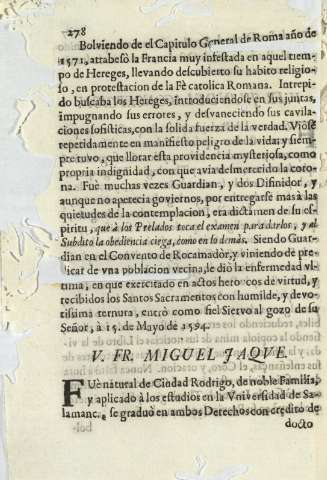 278
Bolviendo de el Capitulo General de Roma año de
1571, attabesò la Francia muy infestada en aquel tiem-
po de Hereges, llevando descubierto su habito religio-
so, en protestacion de la Fè catolica Romana. Intrepi-
do buscaba los Hereges, introduciendose en sus juntas,
impugnando sus errores, y desvaneciendo sus cavila-
ciones sofisticas, con la solida fuerza de la verdad. Viòse
repetidamente en manifiesto peligro de la vida; y siem-
pre tuvo, que llorar esta providencia mysteriosa, como
propria indignidad, con que avia desmerecido la coro-
na. Fuè muchas vezes Guardian, y dos Difinidor, y
aunque no apetecia goviernos, por entregarse mas à las
quietudes de la contemplacion, era dictamen de su es-
piritu, que à los Prelados toca el examen para darlos, y al
Subdito la obediencia ciega, como en lo demàs. Siendo Guar-
dian en el Convento de Rocamador, y viniendo de pre-
dicar de vna poblacion vecina, le diò la enfermedad vl-
tima, en que exercitado en actos heroycos de virtud, y
recibidos los Santos Sacramentos con humilde, y devo-
tissima ternura, entrò como fiel Siervo al gozo de su
Señor, à 15. de Mayo de 1594.
V. FR. MIGUEL JAQUE.
FUè natural de Ciudad Rodrigo, de noble Familia,
y aplicado à los estudios en la Vniversidad de Sa-
lamanca, se graduò en ambos Derechos con credito de
docto